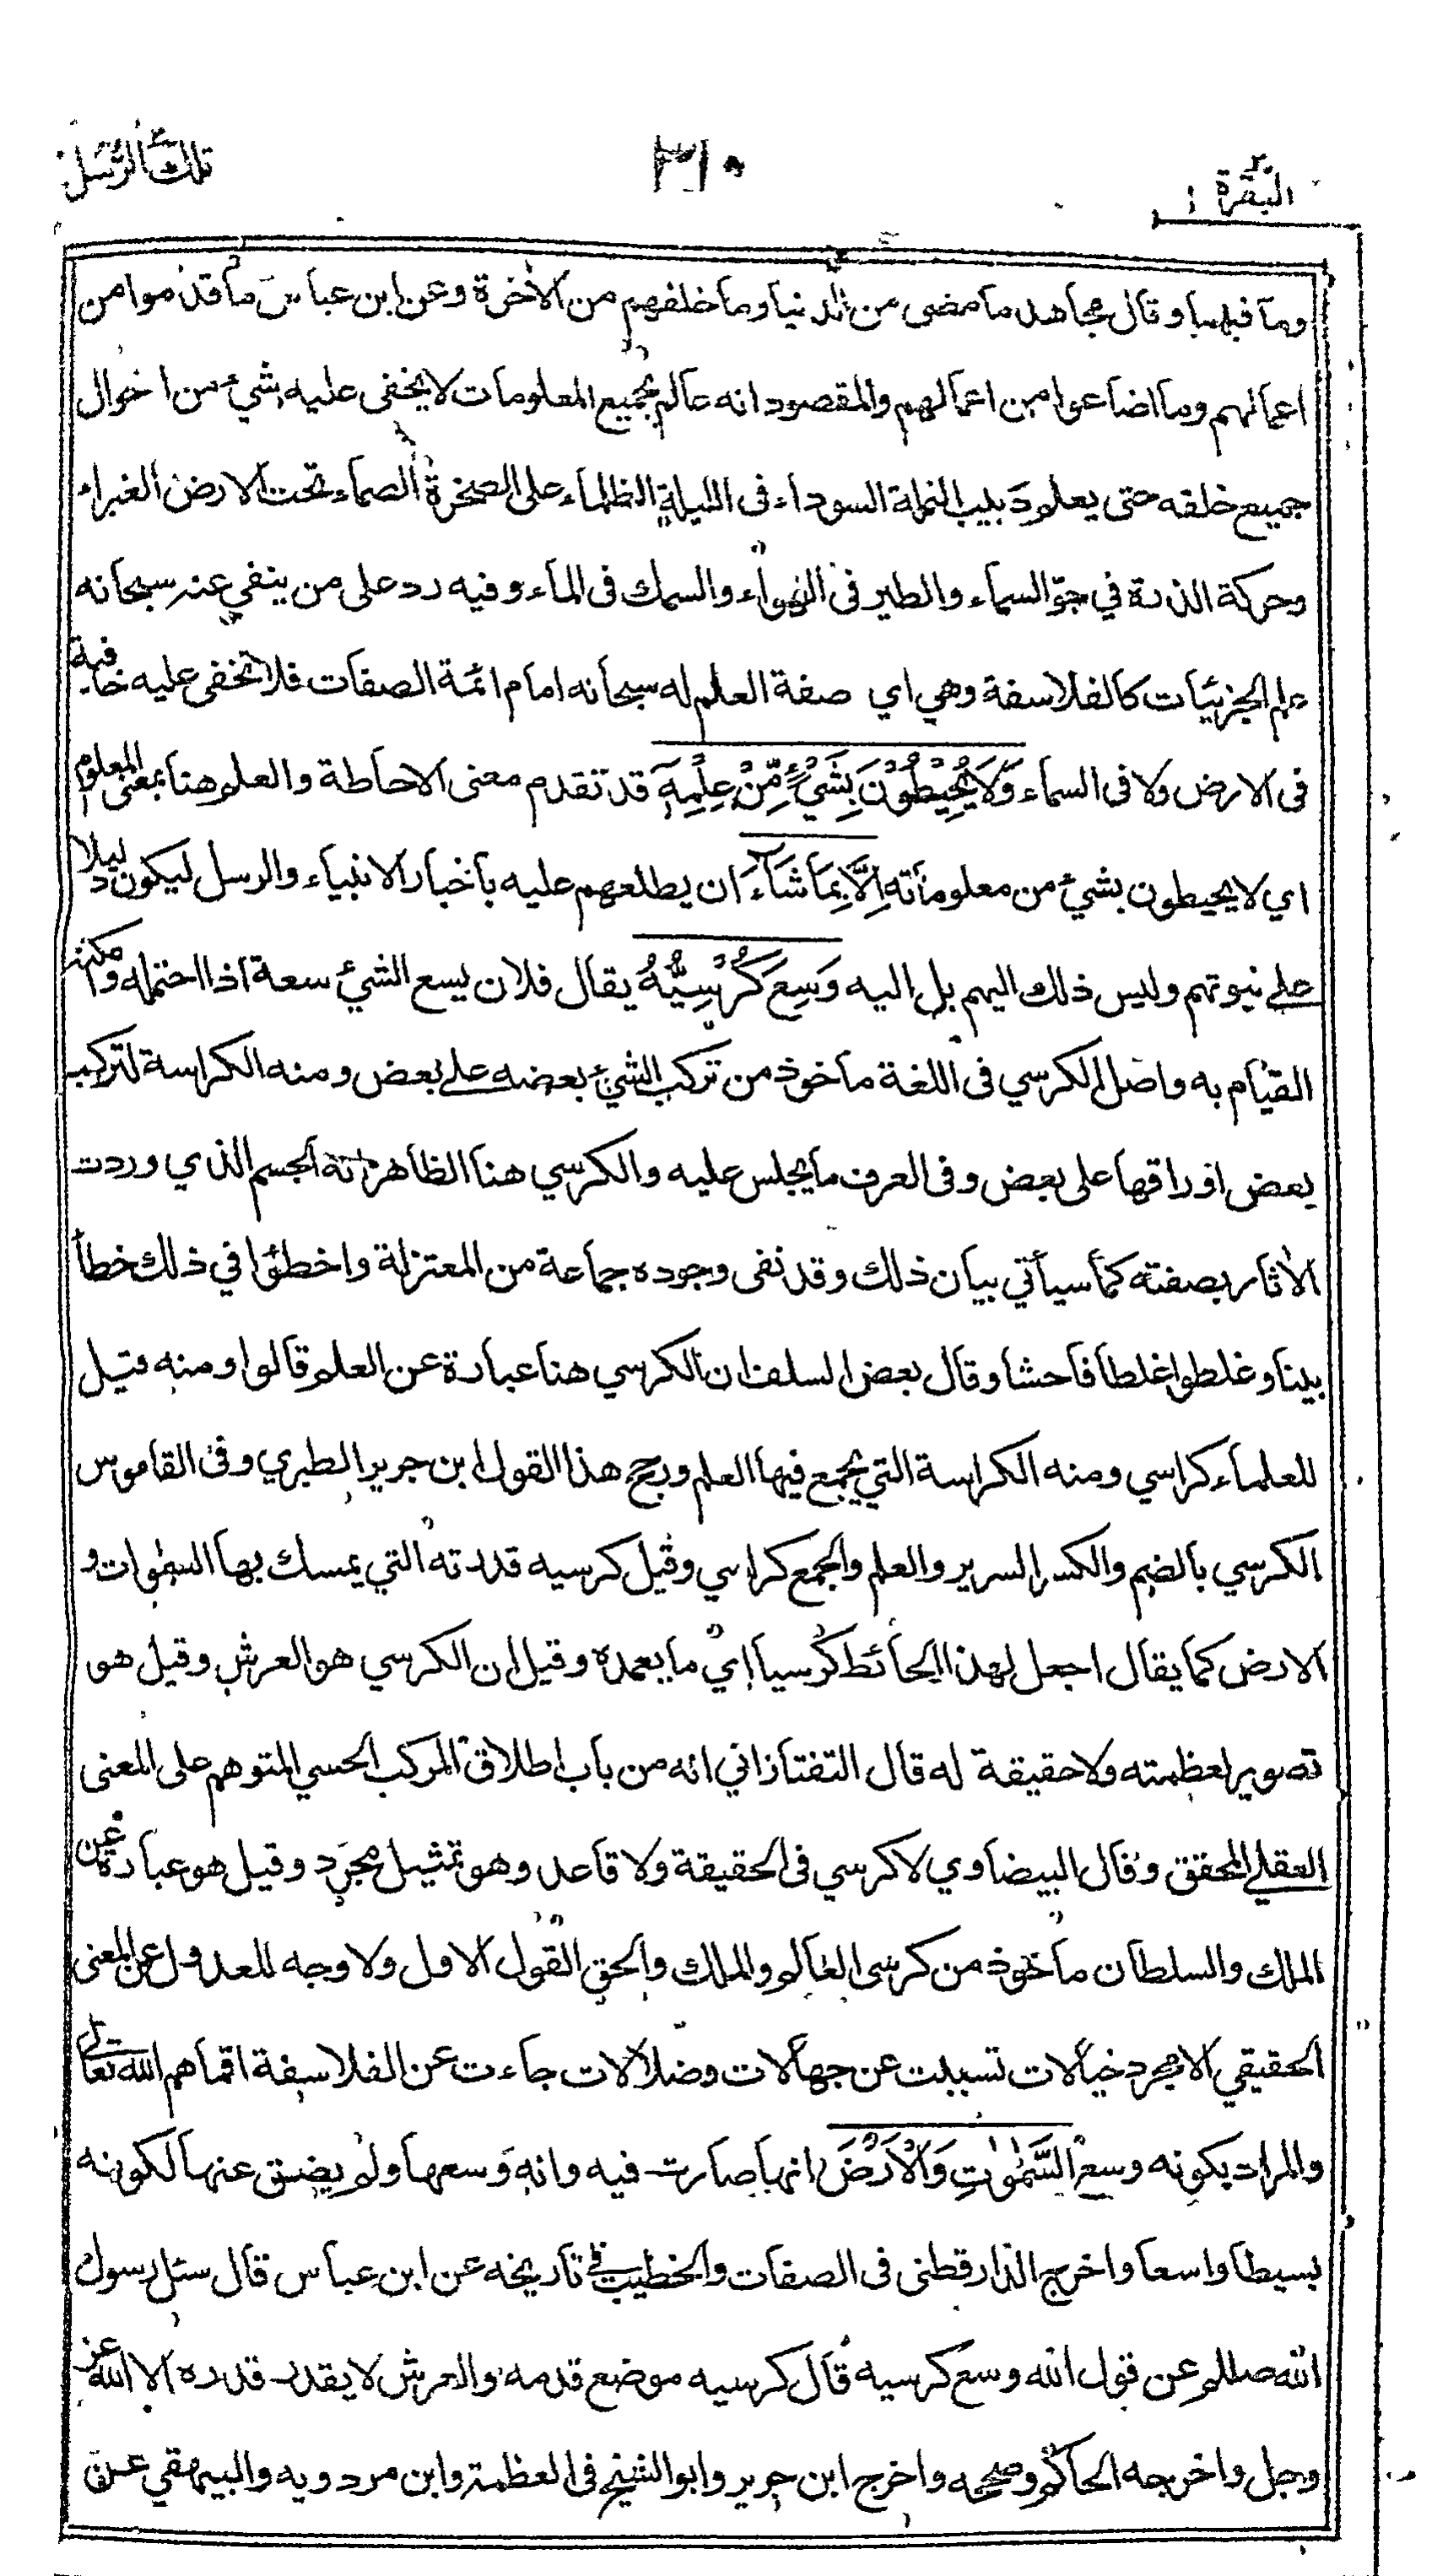 البقرة ٢
٣١٠
تلك الرسل
وما فيهما وقال مجاهد ما مضى من الدنيا وما خلفهم من الاخرة وعن ابن عباس ما قدموا من
اعمالهم وما اضاعوا من اعمالهم والمقصود انه عالم بجميع المعلومات لا يخفى عليه شيء من احوال
جميع خلقه حتى يعلم دبيب النملة السوداء فى الليلة الظلماء على الصخرة الصماء تحت الارض الغبراء
وحركة الذرة في جو السماء والطير فى الهواء والسمك فى الماء وفيه رد على من ينفي عنه سبحانه
علم الجزئيات كالفلاسفة وهي اي صفة العلم له سبحانه امام ائمة الصفات فلا تخفى عليه خافية
فى الارض ولا فى السماء وَلَا يُحِيْطُوْنَ بِشَيْءٍ مِّنْ عِلْمِهٖٓ قد تقدم معنى الاحاطة والعلم هنا بمعنى المعلوم
اي لا يحيطون بشيء من معلوماته اِلَّا بِمَا شَآءَ ان يطلعهم عليه باخبار الانبياء والرسل ليكون دليلا
على نبوتهم وليس ذلك اليهم بل اليه وَسِعَ كُرْسِيُّهُ يقال فلان يسع الشيء سعة اذا احتمله وامكنه
القيام به واصل الكرسي فى اللغة ماخوذ من تركب الشيء بعضه على بعض ومنه الكراسة لتركيب
بعض اوراقها على بعض وفى العرف ما يجلس عليه والكرسي هنا الظاهر انه الجسم الذي وردت
الاثار بصفته كما سيأتي بيان ذلك وقد نفى وجوده جماعة من المعتزلة واخطئوا في ذلك خطأ
بينا وغلطوا غلطا فاحشا وقال بعض السلف ان الكرسي هنا عبارة عن العلم قالوا ومنه قيل
للعلماء كراسي ومنه الكراسة التي يجمع فيها العلم ورجح هذا القول ابن جرير الطبري وفى القاموس
الكرسي بالضم والكسر السرير والعلم والجمع كراسي وقيل كرسيه قدرته التي يمسك بها السموات و
الارض كما يقال اجعل لهذا الحائط كرسيا اي ما يعمده وقيل ان الكرسي هو العرش وقيل هو
تصوير لعظمته ولا حقيقة له قال التفتازاني انه من باب اطلاق المركب الحسي المتوهم على المعنى
العقلي المحقق وقال البيضاوي لا كرسي فى الحقيقة ولا قاعد وهو تمثيل مجرد وقيل هو عبارة عن
الملك والسلطان ماخوذ من كرسى العالم والملك والحق القول الاول ولا وجه للعدول عن المعنى
الحقيقي الا مجرد خيالات تسببت عن جهالات وضلالات جاءت عن الفلاسفة اقماهم الله تعالى
والمراد بكونه وسع السَّمٰوٰتِ وَالْاَرْضَ انها صارت فيه وانه وسعها ولم يضق عنها لكونه
بسيطا واسعا واخرج الدارقطنى فى الصفات والخطيب في تاريخه عن ابن عباس قال سئل رسول
الله صللم عن قول الله وسع كرسيه قال كرسيه موضع قدمه والعرش لا يقدر قدره الا الله عز
وجل واخرجه الحاكم وصححه واخرج ابن جرير وابو الشيخ فى العظمة وابن مردويه والبيهقي عن